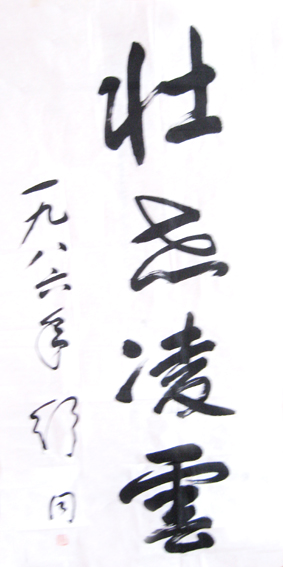 壮志凌雲
一九八六年 舒同